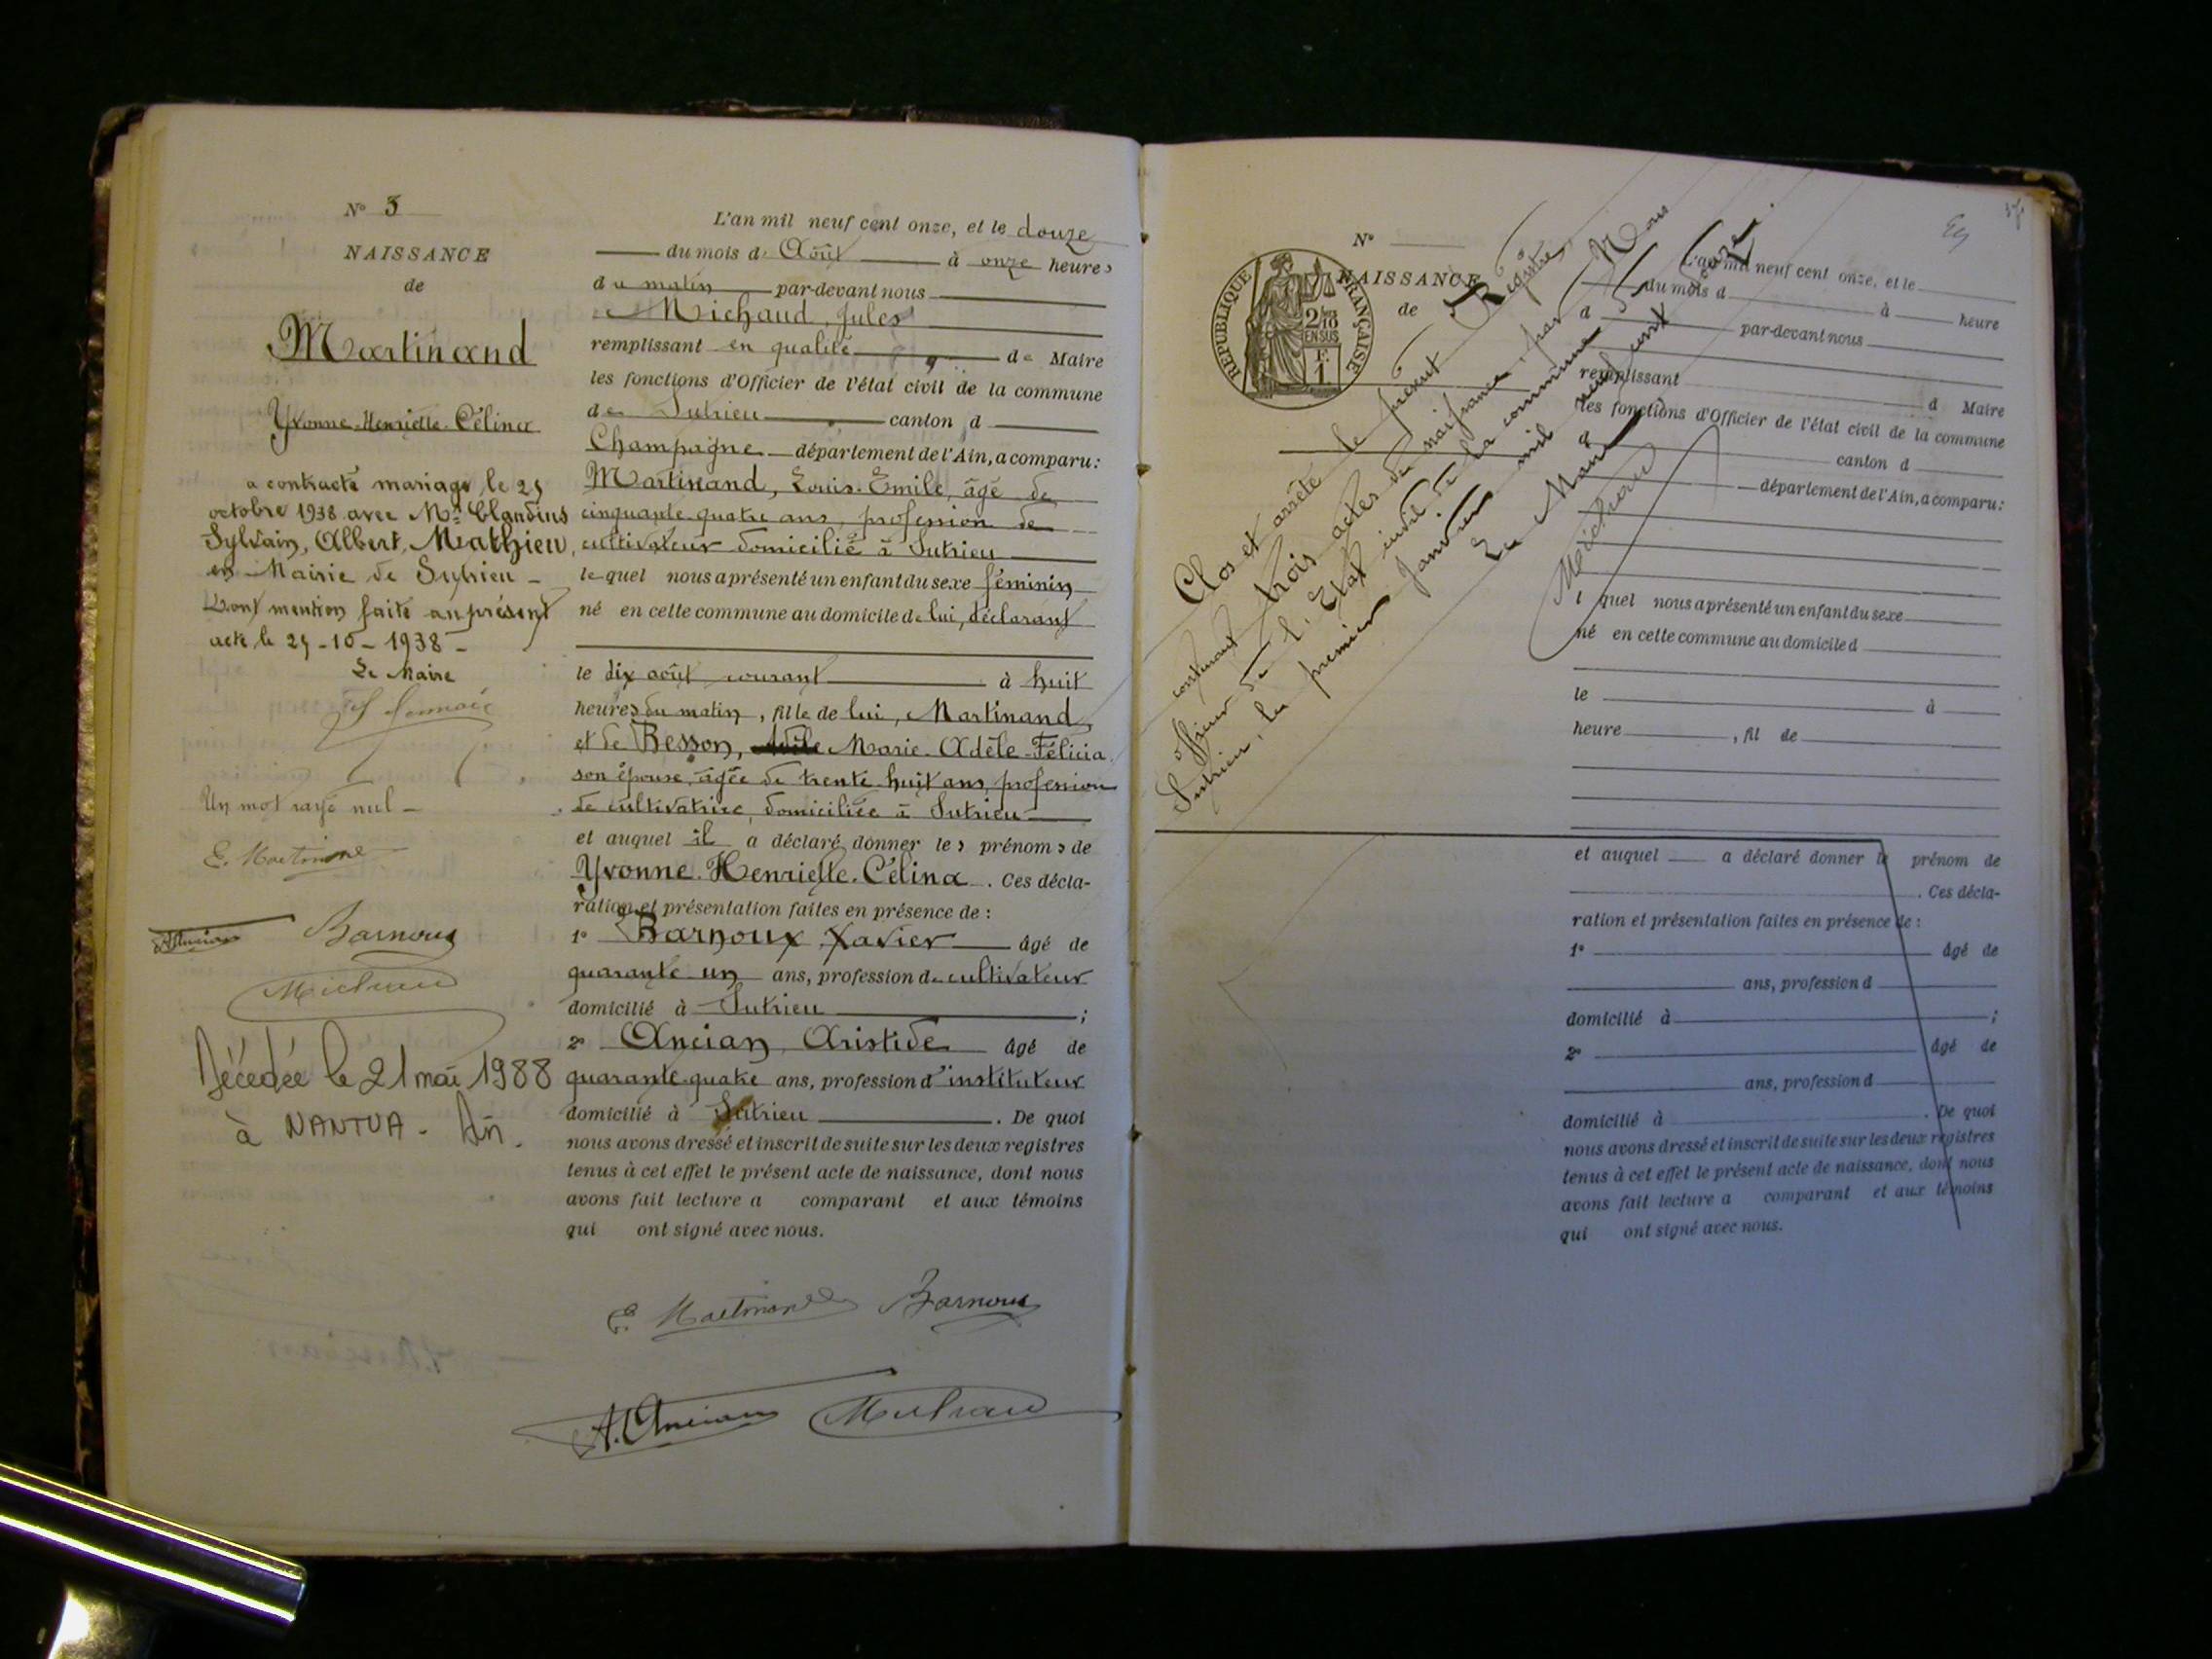 N° 3
NAISSANCE
de
Martinand
Yvonne-Henriette-Célina
a contracté mariage le 29
octobre 1938 avec Mr Claudius
Sylvain, Albert, Mathieu,
en Mairie de Sutrieu -
Dont mention faite au présent
acte le 29-10-1938-
Le Maire
Un mot rayé nul -
E. Martinand
A. Ancian Barnoux
Michaud
Décédée le 21 mai 1988
à NANTUA - Ain.
L'an mil neuf cent onze, et le douze
du mois d' Août à onze heures
du matin par-devant nous
Michaud, Jules
remplissant en qualité de Maire
les fonctions d'Officier de l'état civil de la commune
de Sutrieu canton d
Champagne département de l'Ain, a comparu:
Martinand, Louis-Emile, âgé de
cinquante quatre ans, profession de
cultivateur domicilié à Sutrieu
lequel nous a présenté un enfant du sexe féminin
né en cette commune au domicile de lui, déclarant
le dix août courant à huit
heures du matin, fille de lui, Martinand
et de Besson, Marie-Adèle-Félicia
son épouse, âgée de trente-huit ans, profession
de cultivatrice, domiciliée à Sutrieu
et auquel il a déclaré donner les prénoms de
Yvonne-Henriette-Célina. Ces décla-
ration et présentation faites en présence de :
1° Barnoux Xavier âgé de
quarante un ans, profession de cultivateur
domicilié à Sutrieu ;
2° Ancian Aristide âgé de
quarante-quatre ans, profession d'instituteur
domicilié à Sutrieu. De quoi
nous avons dressé et inscrit de suite sur les deux registres
tenus à cet effet le présent acte de naissance, dont nous
avons fait lecture a comparant et aux témoins
qui ont signé avec nous.
E. Martinand Barnoux
A. Ancian Michaud
N°
NAISSANCE
de
RÉPUBLIQUE FRANÇAISE
2/10
EN SUS
F.
1
Clos et arrêté le présent Registre
contenant trois actes de naissance, par Nous
officier de l'Etat civil de la commune de
Sutrieu, le premier Janvier mil neuf cent douze.
Le Maire
Michaud
L'an mil neuf cent onze, et le
du mois d à heure
d par-devant nous
remplissant d Maire
les fonctions d'Officier de l'état civil de la commune
d canton d
département de l'Ain, a comparu:
l quel nous a présenté un enfant du sexe
né en cette commune au domicile d
le à
heure , fil de
et auquel a déclaré donner le prénom de
. Ces décla-
ration et présentation faites en présence de :
1° âgé de
ans, profession d
domicilié à ;
2° âgé de
ans, profession d
domicilié à . De quoi
nous avons dressé et inscrit de suite sur les deux registres
tenus à cet effet le présent acte de naissance, dont nous
avons fait lecture a comparant et aux témoins
qui ont signé avec nous.